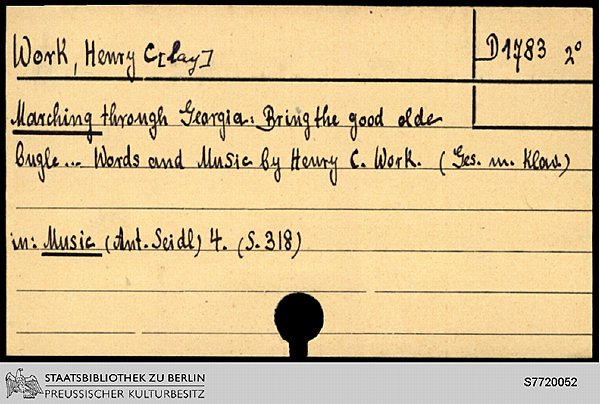 Work, Henry C[lay]
D1783 2°
Marching through Georgia: Bring the good olde
bugle... Words and Music by Henry C. Work. (Ges. m. Klav.)
in: Music (Ant. Seidl) 4. (S. 318)
STAATSBIBLIOTHEK ZU BERLIN
PREUSSISCHER KULTURBESITZ
S7720052